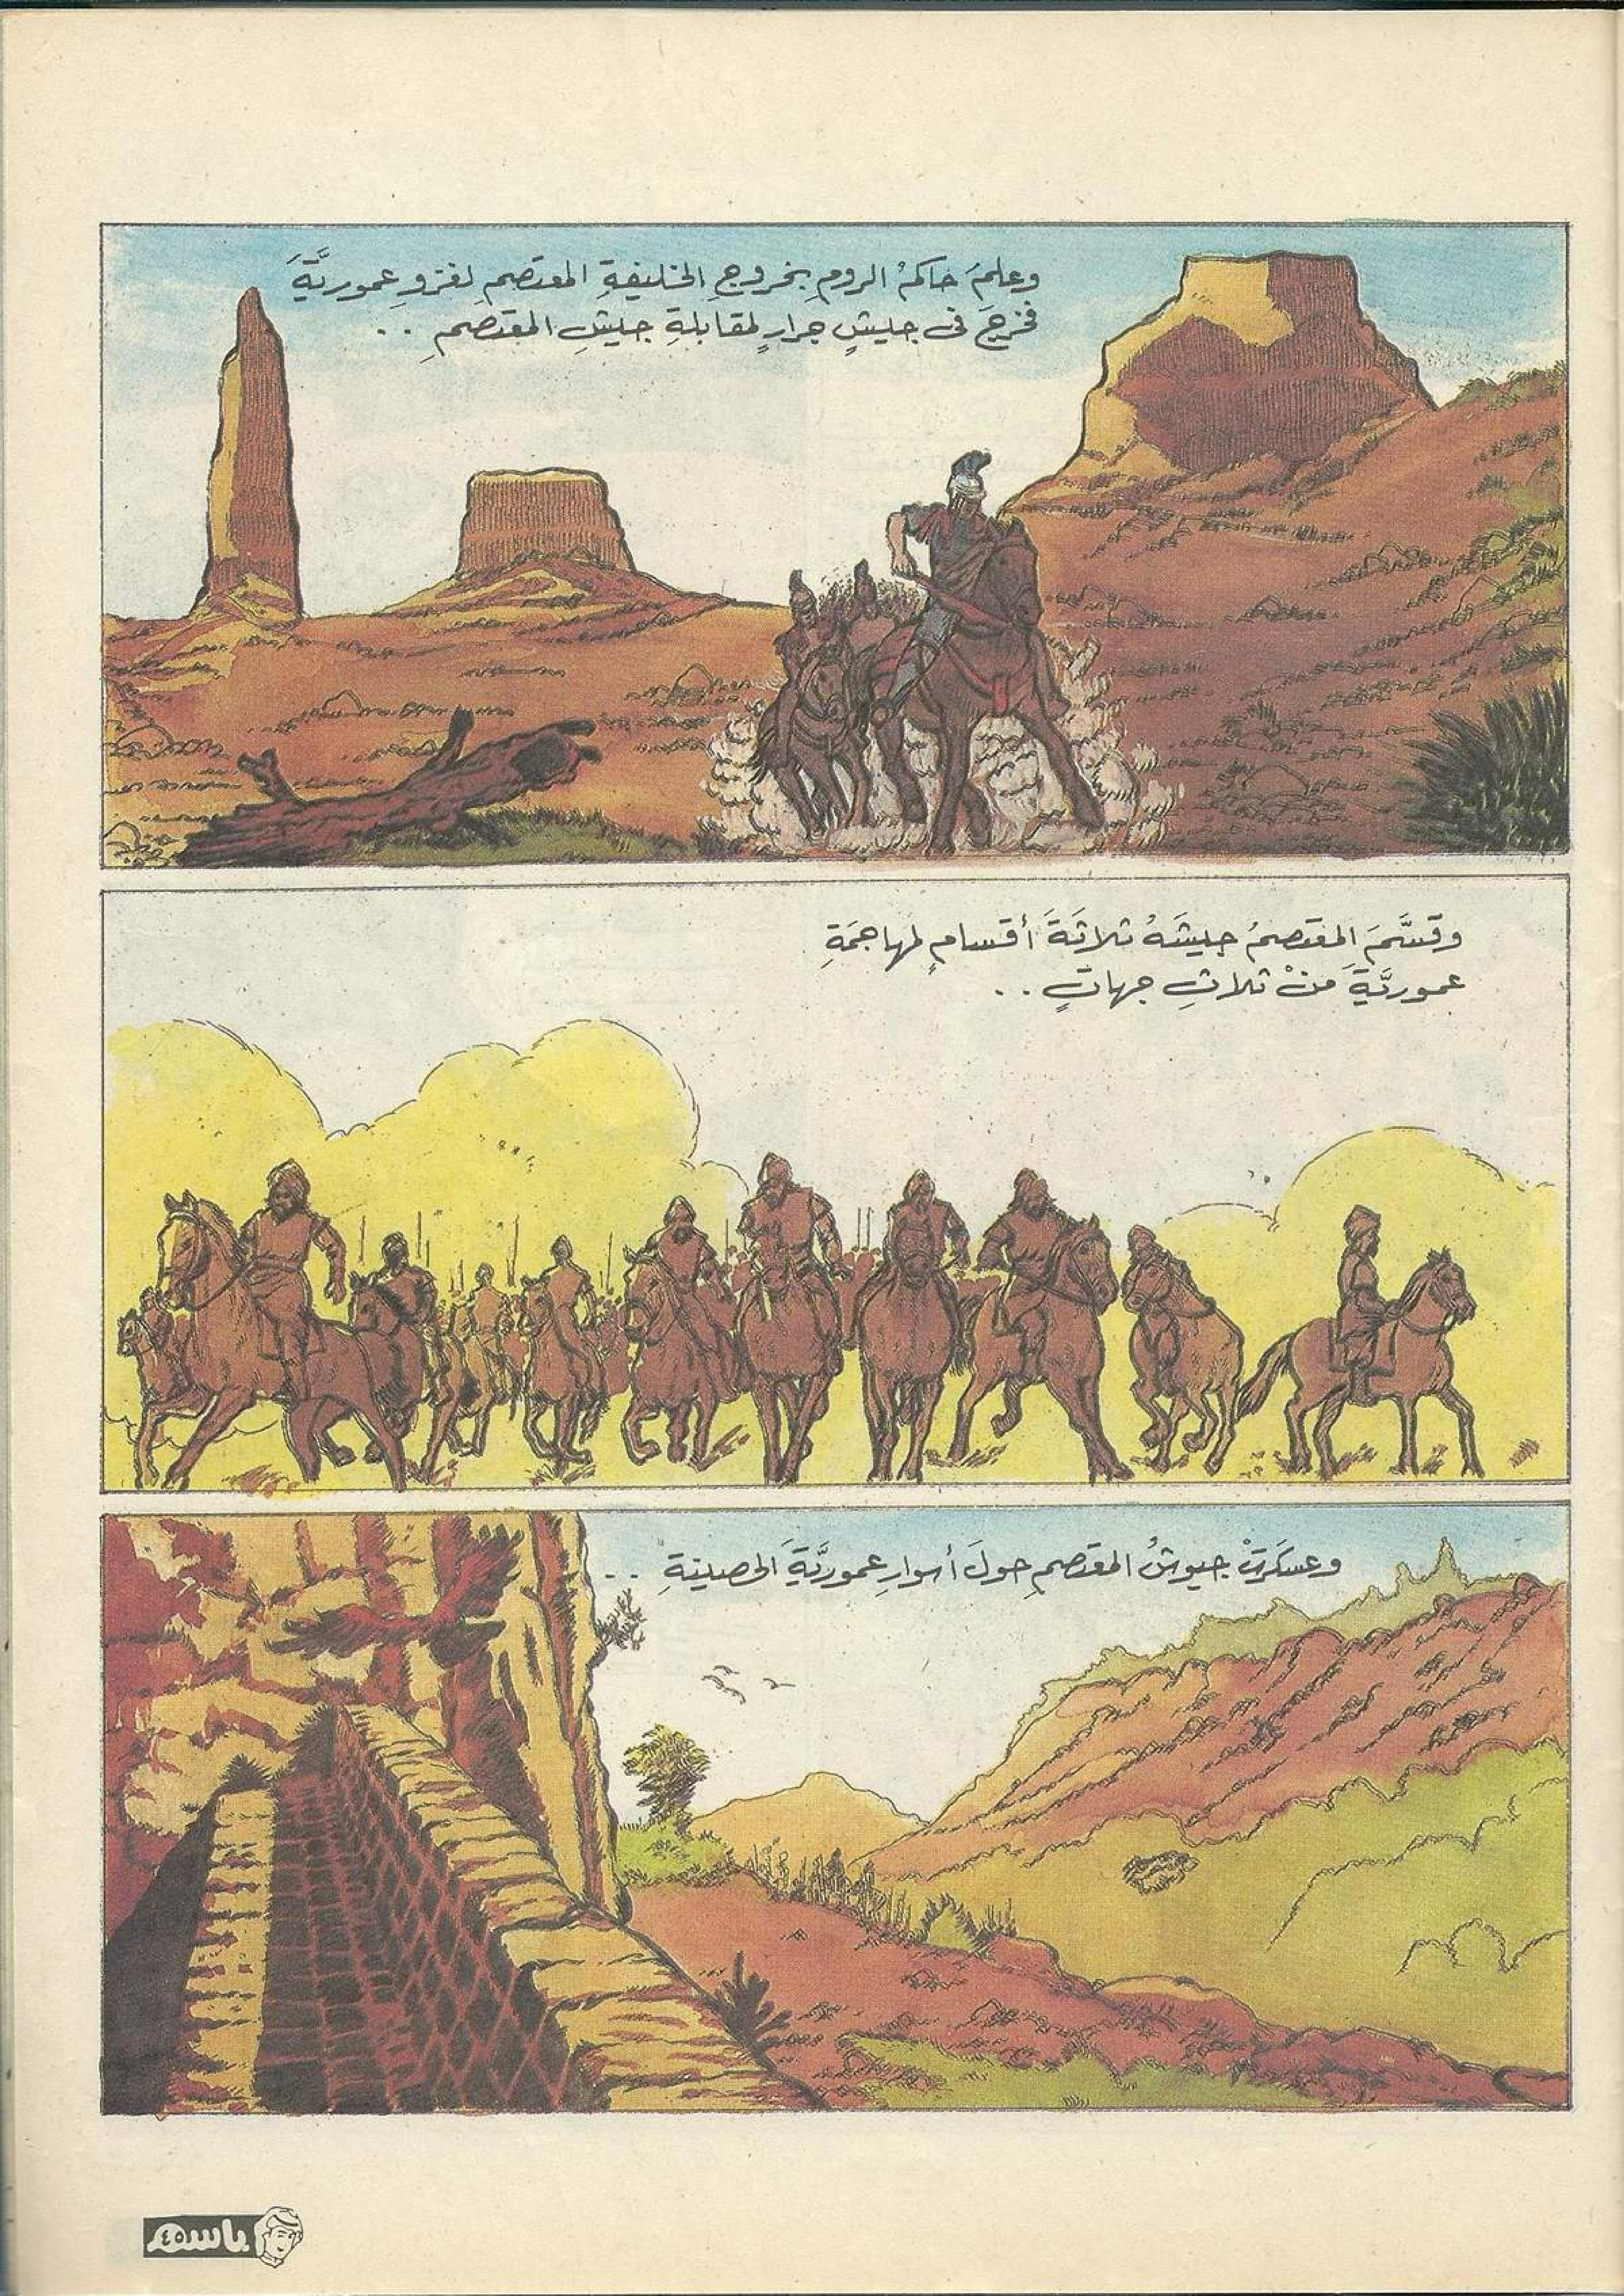 وعلمَ حاكمُ الرومِ بخروجِ الخليفةِ المعتصمِ لغزوِ عموريَّةَ
فخرجَ فى جيشٍ جرارٍ لمقابلةِ جيشِ المعتصمِ ..
وقسَّمَ المعتصمُ جيشَهُ ثلاثةَ أقسامٍ لمهاجمَةِ
عموريَّةَ منْ ثلاثِ جهاتٍ ..
وعسكَرتْ جيوشُ المعتصمِ حولَ أسوارِ عموريَّةَ الحصينةِ ..
باسم
٤٥